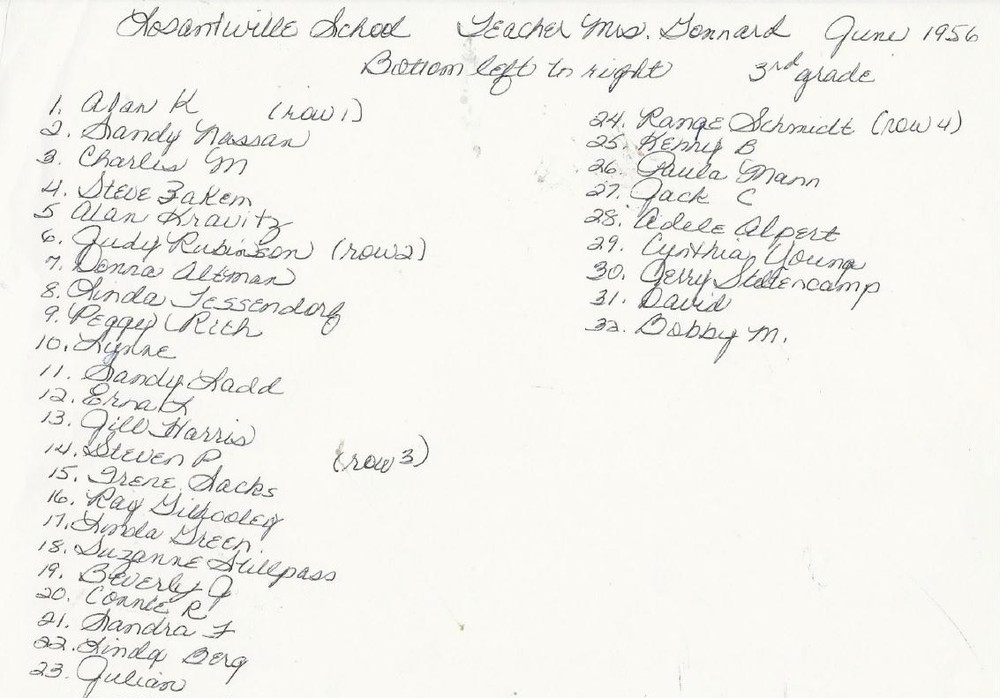 Losantiville School Teacher Mrs. Gonnard June 1956
Bottom left to right 3rd grade
1. Alan K (row 1)
2. Sandy Nassan
3. Charles M
4. Steve Zakem
5 Alan Kravitz
6. Judy Rubinson (row 2)
7. Donna Altman
8. Linda Tessendorf
9. Peggy Rich
10. Lynne
11. Sandy Ladd
12. Erna L
13. Jill Harris
14. Steven P (row 3)
15. Irene Sacks
16. Ray Gilhooley
17. Linda Green
18. Suzanne Stillpass
19. Beverly J
20. Connie R
21. Sandra F
22. Linda Berg
23. Julian
24. Range Schmidt (row 4)
25. Kenny B
26. Paula Mann
27. Jack C
28. Adele Alpert
29. Cynthia Young
30. Gerry
31. David
32. Bobby M.